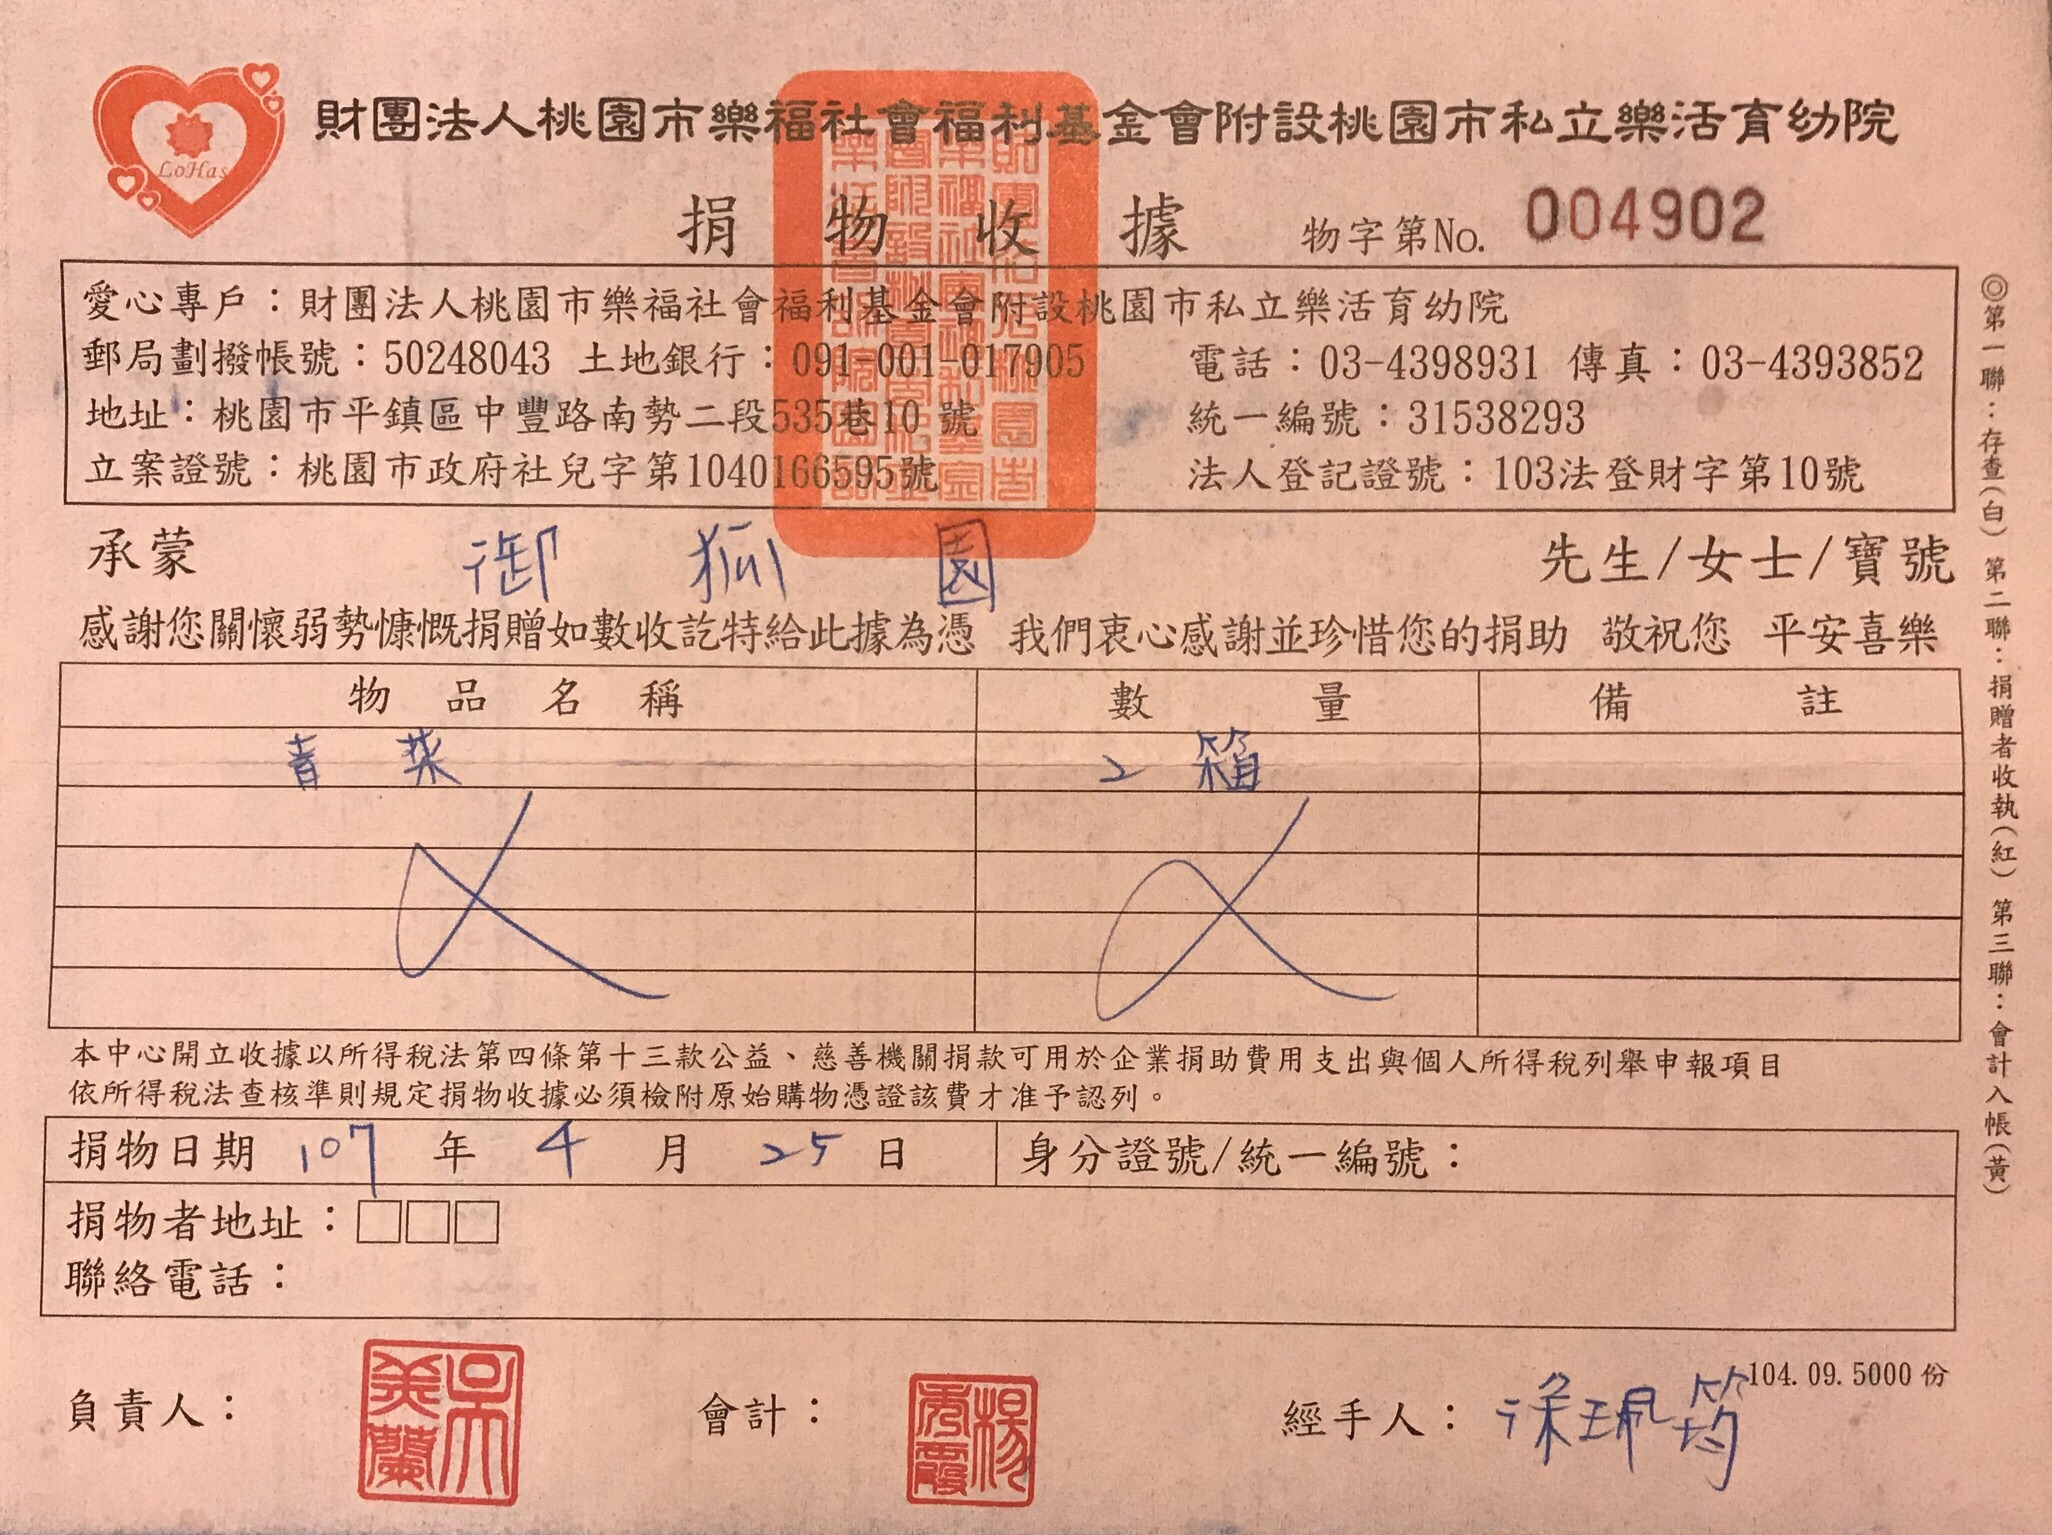 LoHas
財團法人桃園市樂福社會福利基金會附設桃園市私立樂活育幼院
捐物收據 物字第No. 004902
愛心專戶：財團法人桃園市樂福社會福利基金會附設桃園市私立樂活育幼院
郵局劃撥帳號：50248043 土地銀行：091-001-017905 電話：03-4398931 傳真：03-4393852
地址：桃園市平鎮區中豐路南勢二段535巷10號 統一編號：31538293
立案證號：桃園市政府社兒字第1040166595號 法人登記證號：103法登財字第10號
承蒙 御狐園 先生/女士/寶號
感謝您關懷弱勢慷慨捐贈如數收訖特給此據為憑 我們衷心感謝並珍惜您的捐助 敬祝您 平安喜樂
物品名稱 數量 備註
青菜 2箱
本中心開立收據以所得稅法第四條第十三款公益、慈善機關捐款可用於企業捐助費用支出與個人所得稅列舉申報項目
依所得稅法查核準則規定捐物收據必須檢附原始購物憑證該費才准予認列。
捐物日期 107 年 4 月 25 日 身分證號/統一編號：
捐物者地址：□□□
聯絡電話：
104.09.5000份
負責人：吳美蘭 會計：楊秀霞 經手人：徐珮筠
◎第一聯：存查(白) 第二聯：捐贈者收執(紅) 第三聯：會計入帳(黃)